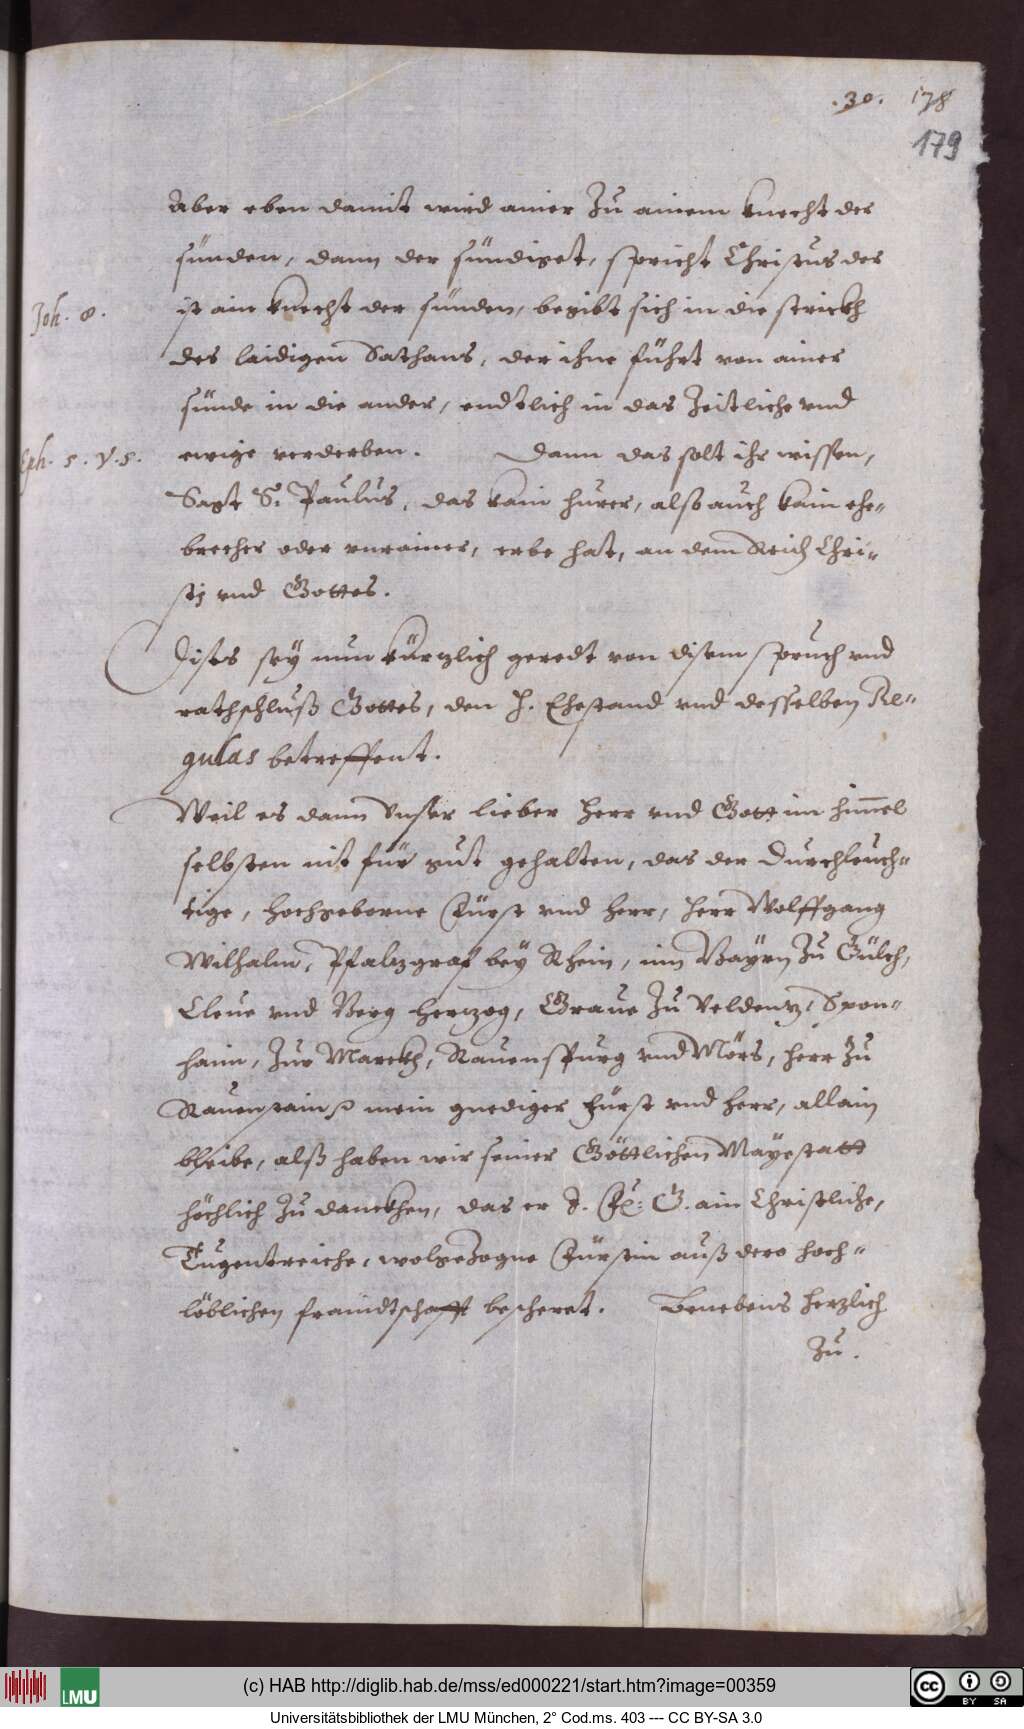 .30. 178
179
Aber eben damit wird ainer zu ainem knecht der
sünden, dann der sündiget, spricht Christus der
Joh. 8.
ist ain knecht der sünden, begibt sich in die strickh
des laidigen Sathans, der ihne führt von ainer
sünde in die ander, endtlich in das Zeitliche vnd
Eph. 5. v. 5.
ewige verderben. Dann das solt ihr wissen,
Sagt S. Paulus, das kain hurer, also auch kain ehe-
brecher oder vnrainer, erbe hat, an dem Reich Chri-
sti vnd Gottes.
Dises sey nun kürzlich geredt von disem spruch vnd
rathschluß Gottes, den H. Ehestand vnd desselben Re-
gulas betreffent.
Weil es dann Vnser lieber Herr vnd Gott im himmel
selbsten nit für gut gehalten, das der Durchleuch-
tige, Hochgeborne Fürst vnd Herr, Herr Wolffgang
Wilhalm, Pfalzgraf bey Rhein, inn Bayrn zu Gülch,
Cleue vnd Berg Hertzog, Graue zu Veldentz, Spon-
haim, Zur Marckh, Rauenspurg vnd Mörs, Herr zu
Rauenstain mein gnediger Fürst vnd Herr, allain
bleibe, alß haben wir seiner Göttlichen Mayestatt
höchlich zu danckhen, das er J. Fr: G. ain Christliche,
Tugentreiche, wolgezogne Fürstin auß dero hoch-
löblichen fraindtschafft bescheret. Benebens herzlich
zu.
(c) HAB http://diglib.hab.de/mss/ed000221/start.htm?image=00359
LMU
cc BY SA
Universitätsbibliothek der LMU München, 2° Cod.ms. 403 --- CC BY-SA 3.0